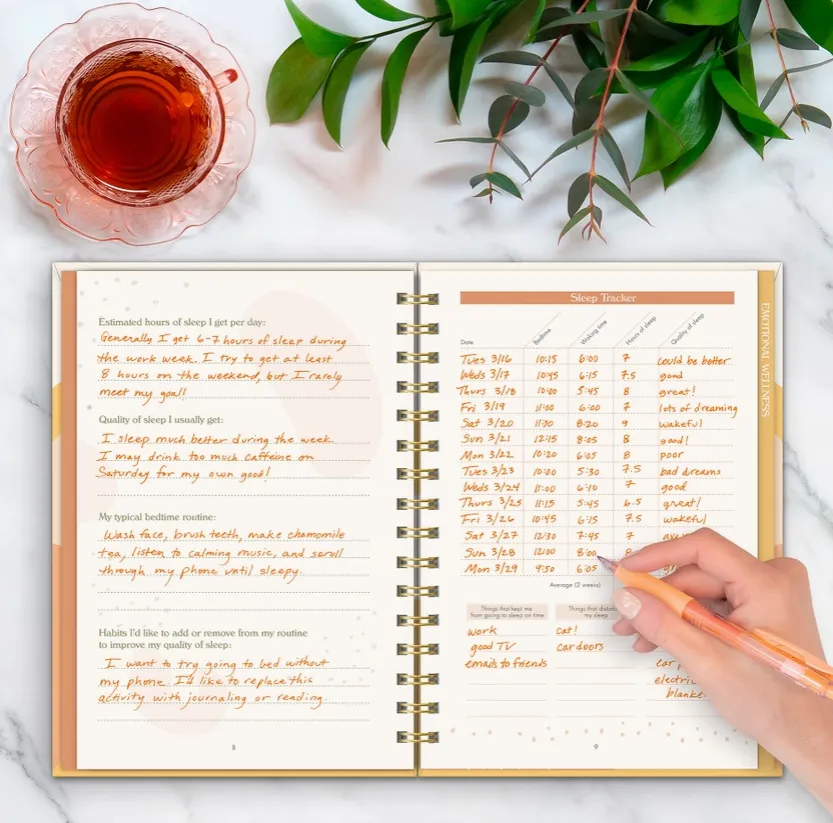 Estimated hours of sleep I get per day:
Generally I get 6-7 hours of sleep during
the work week. I try to get at least
8 hours on the weekend, but I rarely
meet my goal!
Quality of sleep I usually get:
I sleep much better during the week.
I may drink too much caffeine on
Saturday for my own good!
My typical bedtime routine:
Wash face, brush teeth, make chamomile
tea, listen to calming music, and scroll
through my phone until sleepy.
Habits I'd like to add or remove from my routine
to improve my quality of sleep:
I want to try going to bed without
my phone. I'd like to replace this
activity with journaling or reading
8
Sleep Tracker
Date Bedtime Waking time Hours of sleep Quality of sleep
Tues 3/16 10:15 6:00 7 could be better
Weds 3/17 10:45 6:15 7.5 good
Thurs 3/18 10:00 5:45 8 great!
Fri 3/19 11:00 6:00 7 lots of dreaming
Sat 3/20 11:30 8:20 9 wakeful
Sun 3/21 12:15 8:05 8 good!
Mon 3/22 10:20 6:05 8 poor
Tues 3/23 10:00 5:30 7.5 bad dreams
Weds 3/24 11:00 6:10 7 good
Thurs 3/25 11:15 5:45 6.5 great!
Fri 3/26 10:45 6:15 7.5 wakeful
Sat 3/27 12:30 7:45 7
Sun 3/28 12:00 8:00 8
Mon 3/29 9:50 6:05
Average (2 weeks)
Things that kept me
from going to sleep on time
Things that
my sleep
work cat!
good TV car doors
emails to friends
car
9
EMOTIONAL WELLNESS